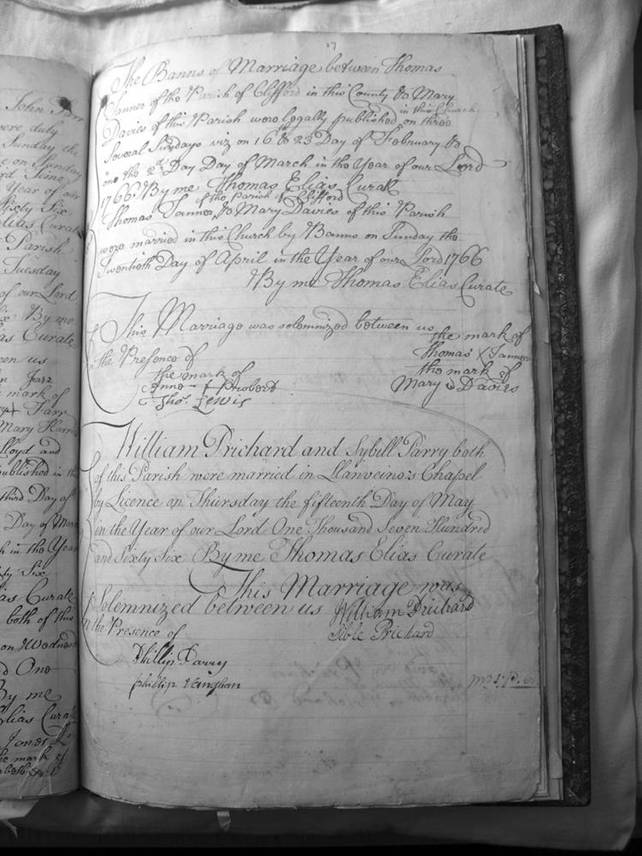 John Parr
were duly
Sunday the
on Sunday
Year of our
Sixty Six
Elias Curate
Parish
Tuesday
of our Lord
By me
as Curate
een us
mark of
Mary Harris
lloyd and
published in th
third Day of
Day of Mar
h in the Year
ty Six
as Curate
both of this
on Wednes
d One
By me
Elias Curat
Jones
he mark of
17
The Banns of Marriage between Thomas
Tanner of the Parish of Clifford in this County & Mary
in this Church
Davies of this Parish were legally published on three
Several Sundays viz on 16th & 23 Day of February &
one the 2d Day Day of March in the Year of our Lord
1766 By me Thomas Elias Curate
of the Parish of Clifford
Thomas Tanner & Mary Davies of this Parish
were married in this Church by Banns on Sunday the
Twentieth Day of April in the Year of our Lord 1766
By me Thomas Elias Curate
This Marriage was solemnized between us the mark of
Thomas X Tanner
the Presence of the mark of
the mark of Mary Davies
Anne + Probert
Thos. Lewis
William Prichard and Sybill Parry both
of this Parish were married in Llanveino's Chapel
by Licence on Thursday the fifteenth Day of May
in the Year of our Lord One Thousand Seven Hundred
and Sixty Six By me Thomas Elias Curate
This Marriage was
Solemnized between us William Prichard
in the Presence of Sible Prichard
Phillip Parry
phillip Vaughan